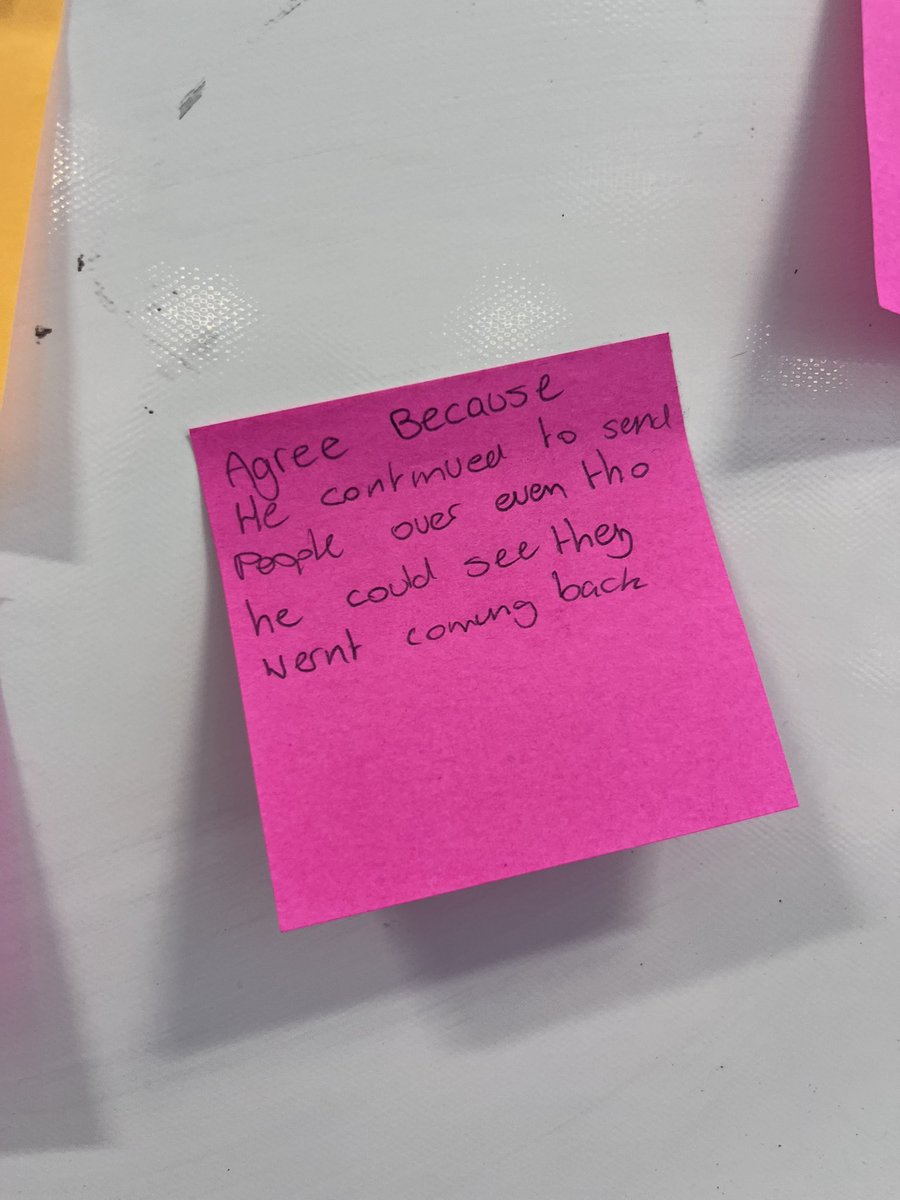 Agree Because
He continued to send
People over even tho
he could see they
wernt coming back